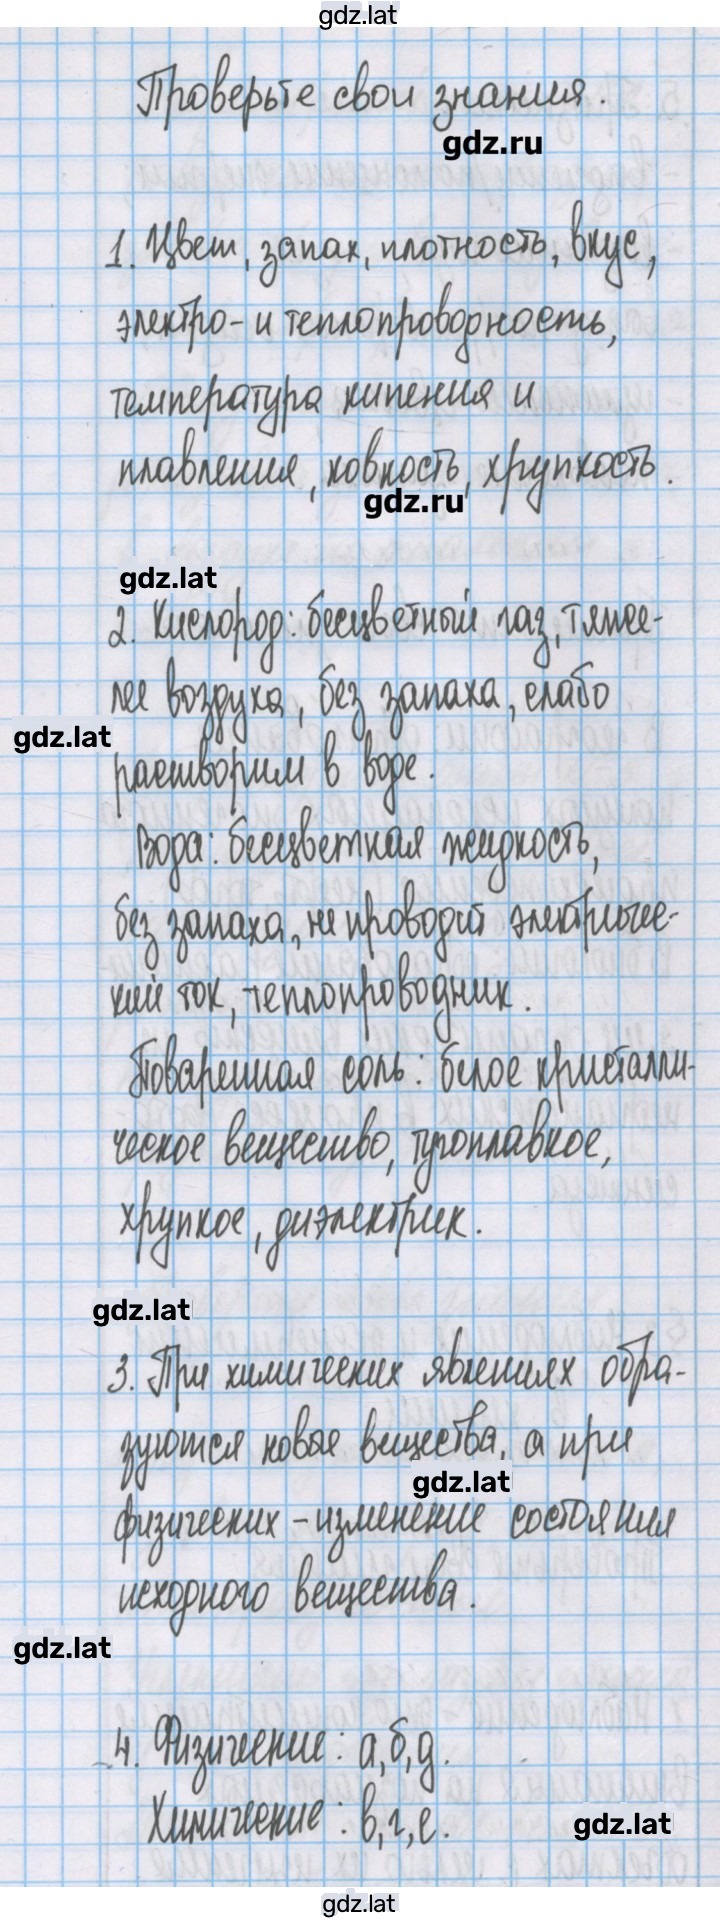 gdz.lat
Проверьте свои знания.
gdz.ru
1. Цвет, запах, плотность, вкус,
электро- и теплопроводность,
температура кипения и
плавления, ковкость, хрупкость.
gdz.ru
gdz.lat
2. Кислород: бесцветный газ, тяже-
лее воздуха, без запаха, слабо
gdz.lat
растворим в воде.
Вода: бесцветная жидкость,
без запаха, не проводит электричес-
кий ток, теплопроводник.
Поваренная соль: белое кристалли-
ческое вещество, тугоплавкое,
хрупкое, диэлектрик.
gdz.lat
3. При химических явлениях обра-
зуются новые вещества, а при
gdz.lat
физических - изменение состояния
исходного вещества.
gdz.lat
4. Физические: а, б, д.
Химические: в, г, е.
gdz.lat
gdz.lat